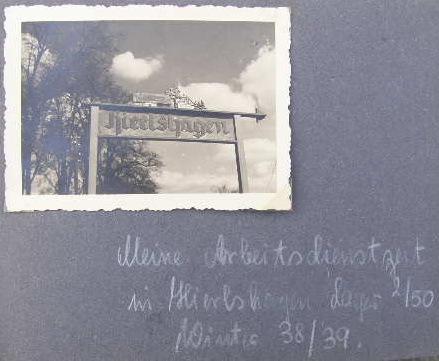 Hierlshagen
Meine Arbeitsdienstzeit
in Hierlshagen Lager 2/50
Winter 38/39.